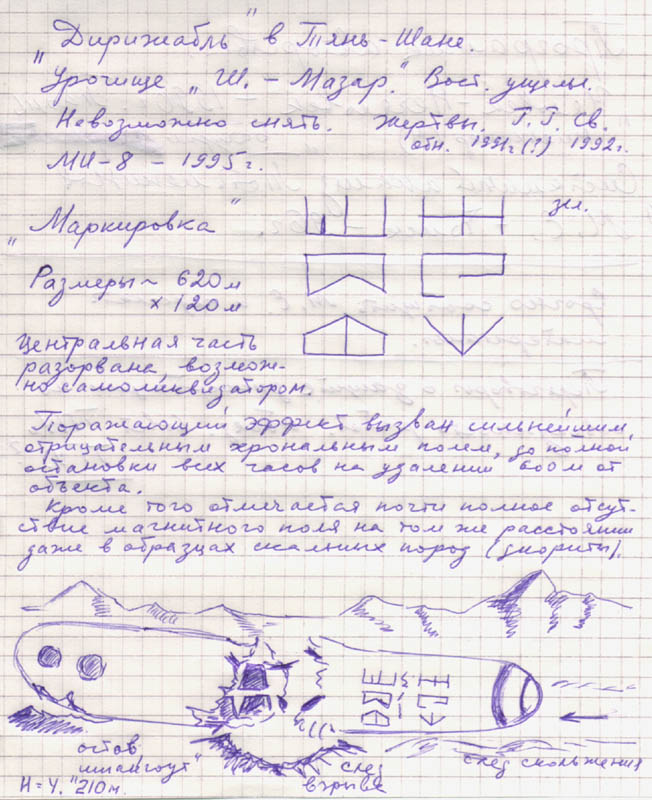 "Дирижабль" в Тянь-Шане.
Урочище "Ш.-Мазар." Вост. ущелье.
Невозможно снять. Жертвы. Г.Г. Св.
обн. 1991г(?) 1992г.
МИ-8 - 1995г.
"Маркировка"
зел.
Размеры ~ 620м
х 120м
Центральная часть
разорвана, возмож-
но самоликвидатором.
Поражающий эффект вызван сильнейшим,
отрицательным хрональным полем, до полной
остановки всех часов на удалении 600м от
объекта.
Кроме того отмечается почти полное отсут-
ствие магнитного поля на том же расстоянии
даже в образцах скальных пород (диориты).
остов
"шпангоут"
след
взрыва
след скольжения
Н=4.210м.